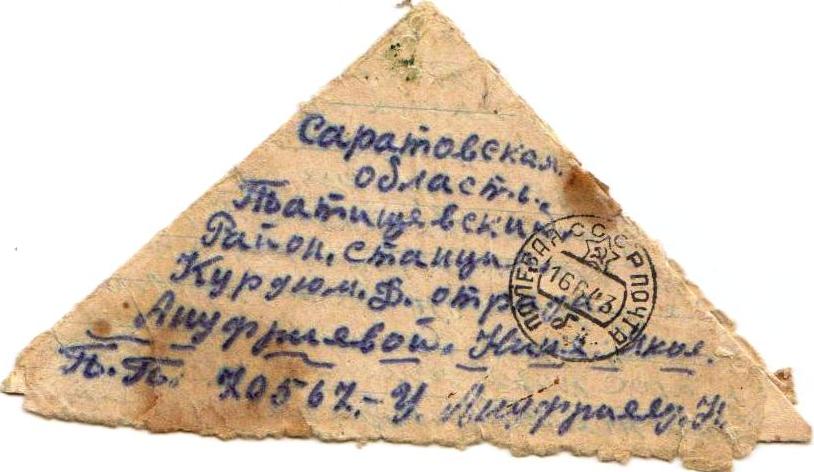 Саратовская
область.
Татищевский
Район. станция
Курдюм. Д. отрада
Ануфриевой.
П.П. 70567.-У. Ануфриев. Н
ПОЛЕВАЯ ПОЧТА СССР
16 6 43